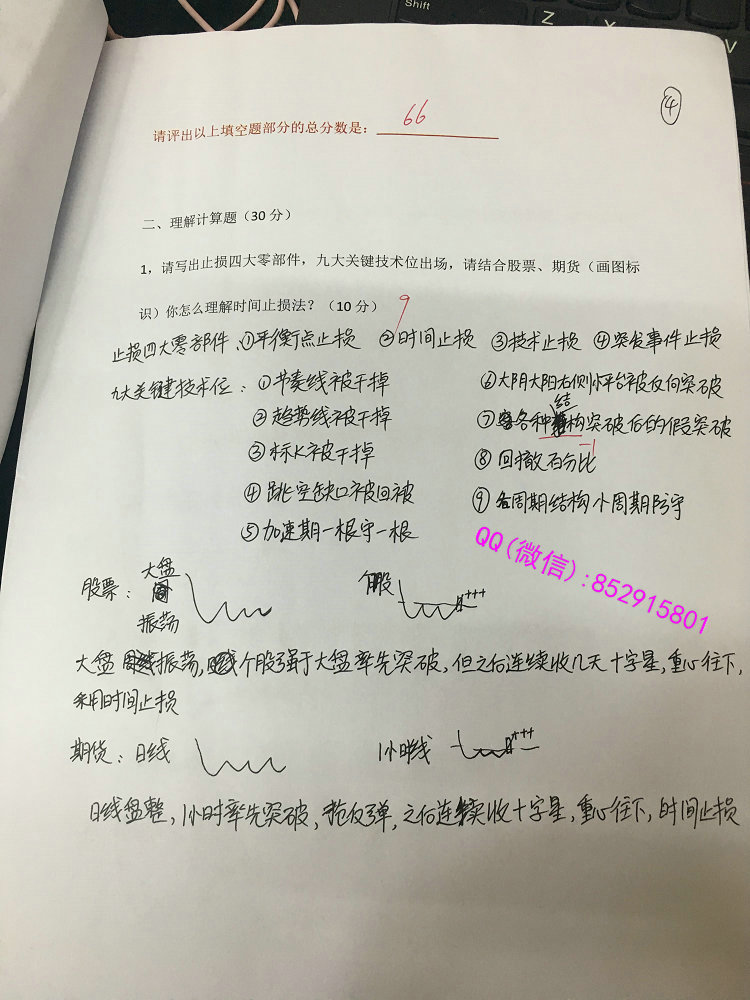 Shift
Z
X
V
④
请评出以上填空题部分的总分数是：66
二、理解计算题（30 分）
1，请写出止损四大零部件，九大关键技术位出场，请结合股票、期货（画图标
识）你怎么理解时间止损法？（10 分）
9
止损四大零部件、①平衡点止损 ②时间止损 ③技术止损 ④突发事件止损
九大关键技术位：①节奏线被干掉 ⑥大阴大阳右侧小平台被反向突破
②趋势线被干掉 ⑦各种结构突破后的假突破
-1
③标K被干掉 ⑧回撤百分比
④跳空缺口被回被 ⑨各周期结构小周期防守
⑤加速期一根守一根
QQ(微信):852915801
股票：大盘 个股
振荡
大盘振荡，个股强于大盘率先突破，但之后连续收几天十字星，重心往下，
采用时间止损
期货：日线 1小时线
日线盘整，1小时率先突破，抢反弹，之后连续收十字星，重心往下，时间止损